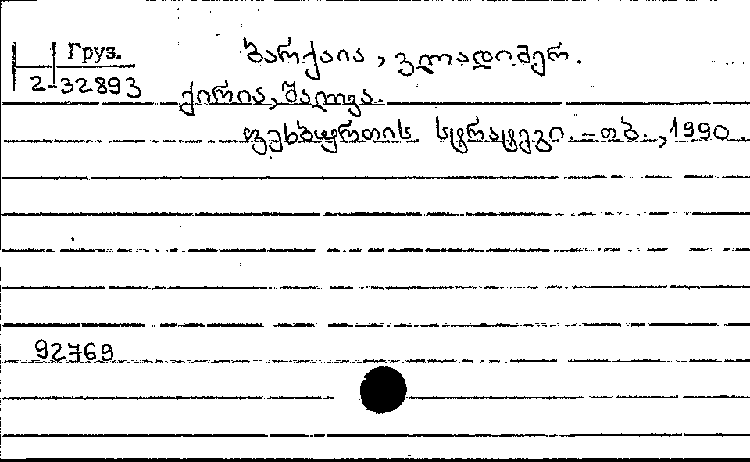 Груз.
2-32893
ბარქაია, ვლადიმერ.
ქირია, შალვა.
ფეხბურთის სტრატეგი. – თბ., 1990.
92769